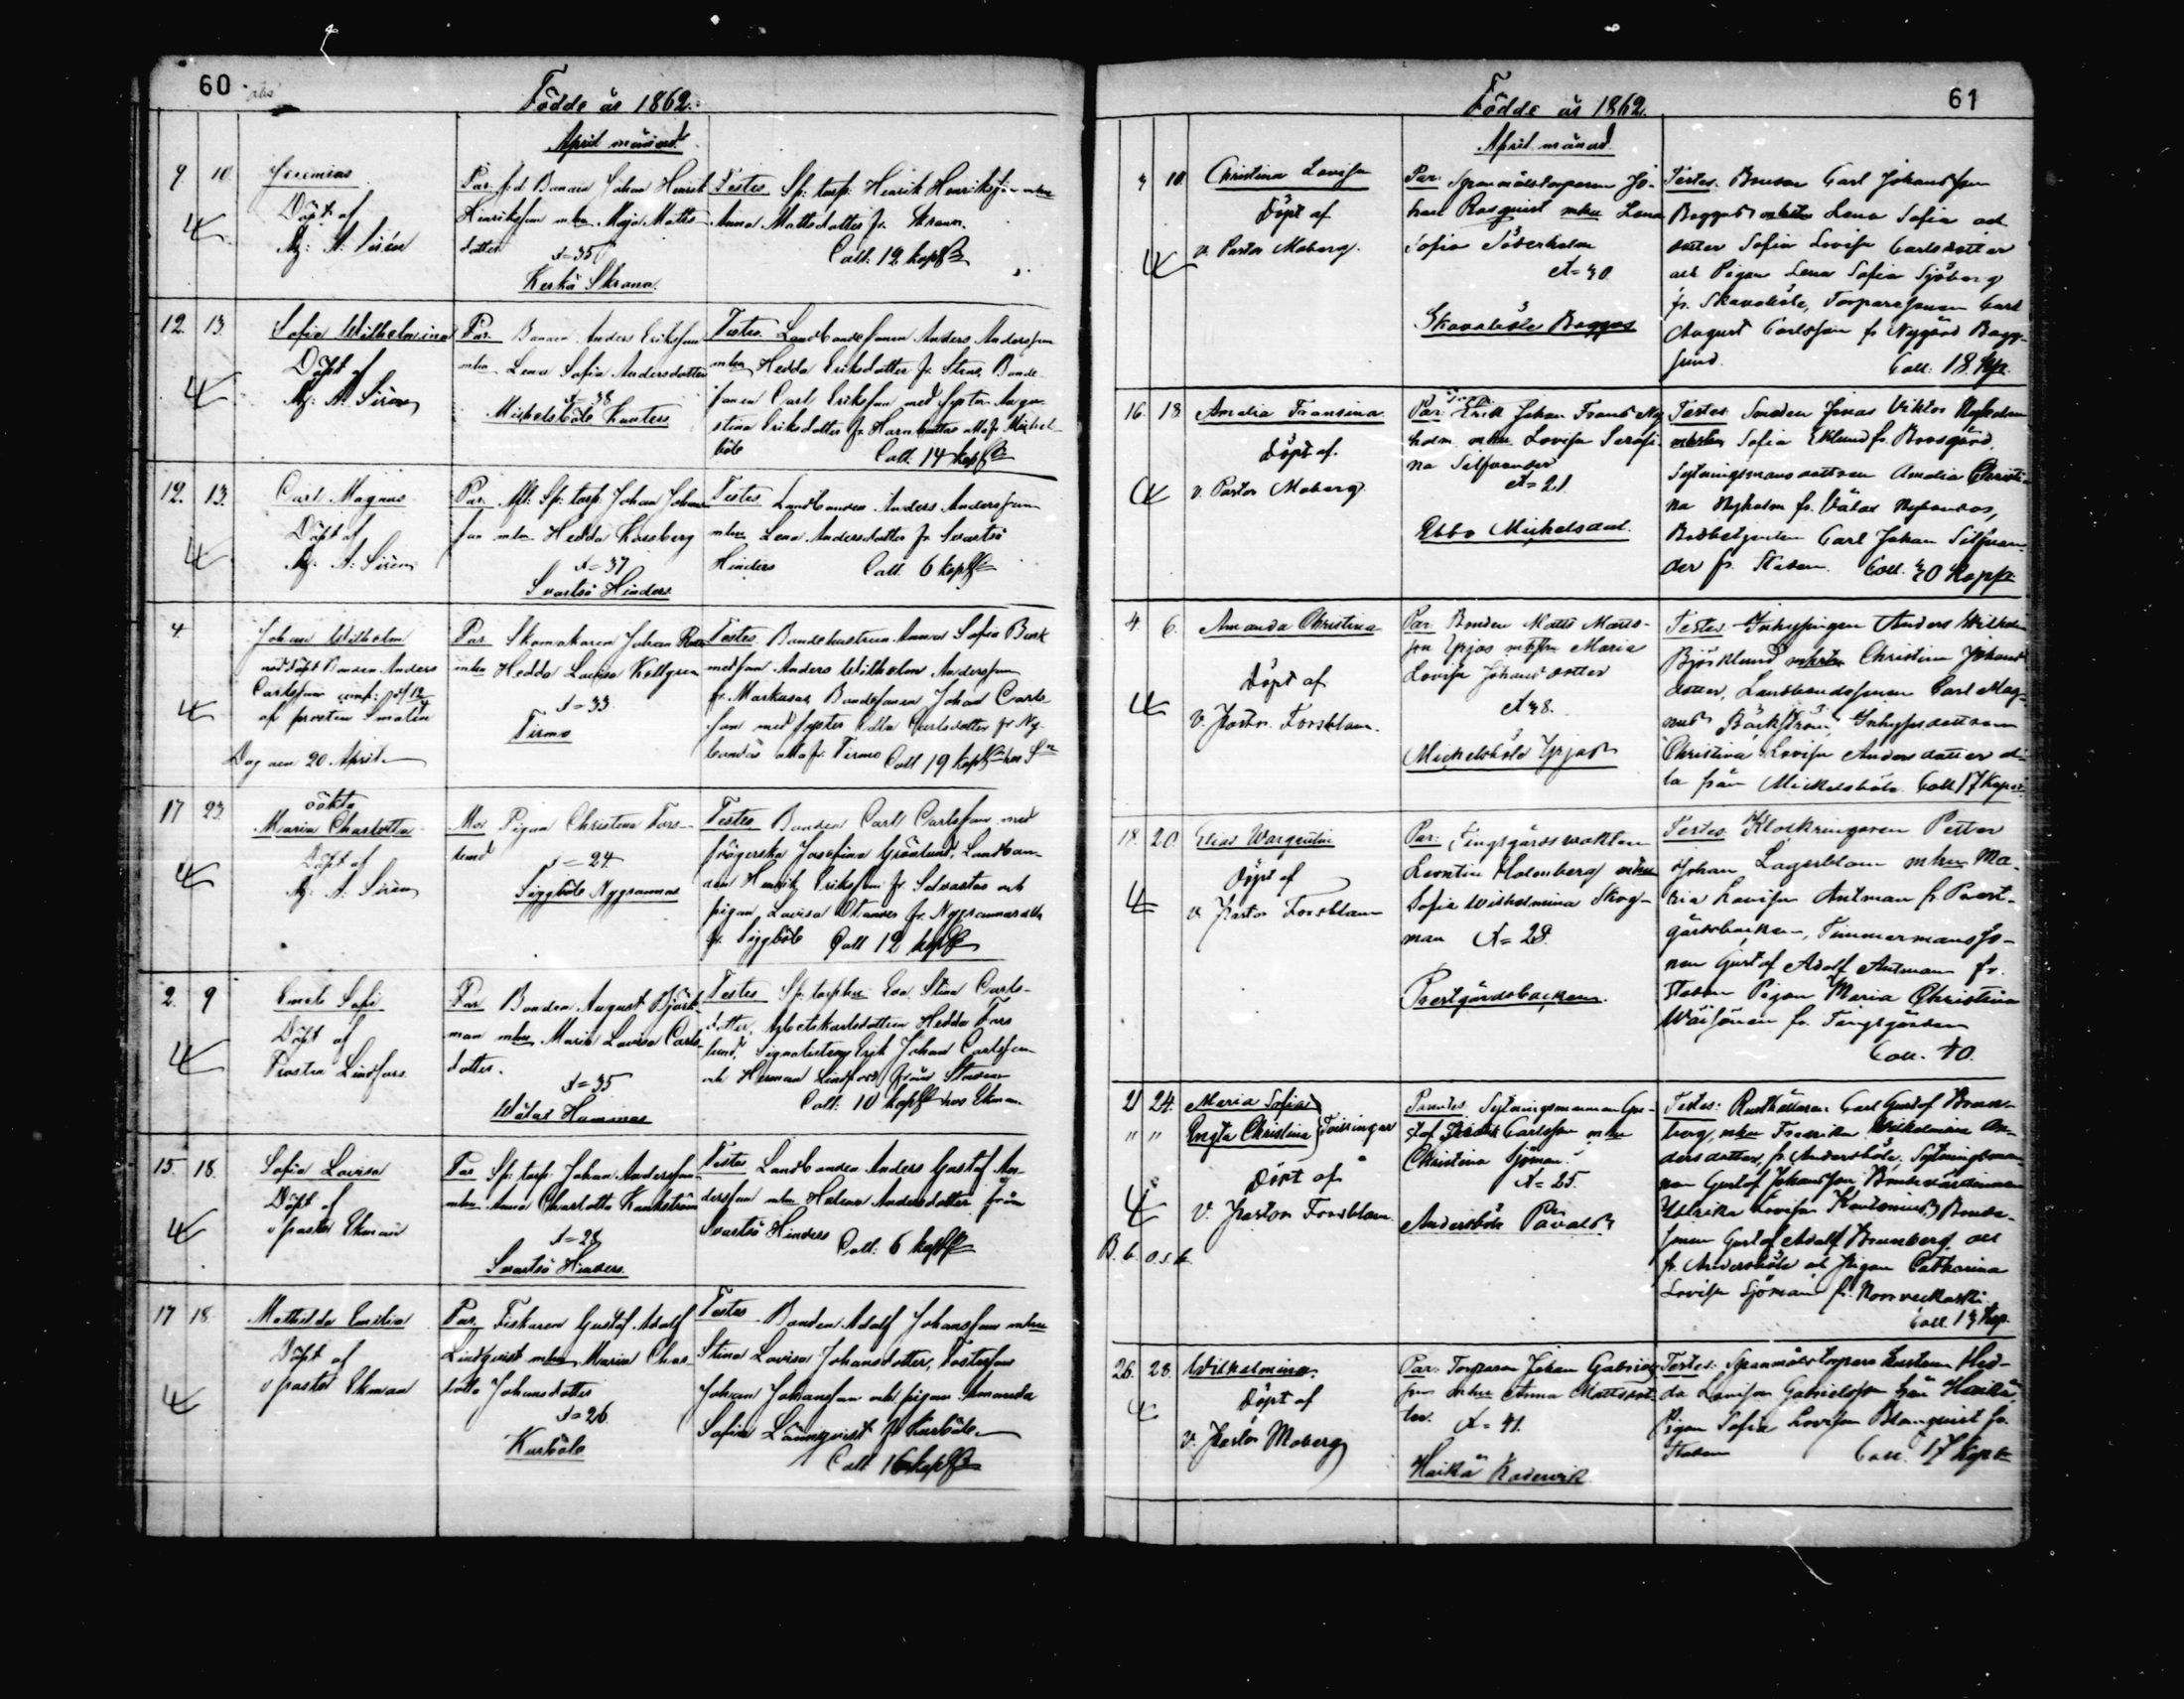 60
Födde år 1862.
April månad.
9. 10. Jeremias
Döpt af
Mg: A. Sirén
Par. f.d. Bonden Johan Henrik
Henriksson mhu Maja Matts
dotter
A=35
Kerkö Skrana.
Testes Sp: torp: Henrik Henriksson mhu
Anna Mattsdotter fr. Skrana.
Coll: 12 kop
12 13. Sofia Wilhelmina
Döpt af
Mg: A. Sirén
Par. Bonden Anders Eriksson
mhu Lena Sofia Andersdotter
A=38
Mickelsböle Kunters
Testes Landbondesonen Anders Andersson
mhu Hedda Eriksdotter fr. Bonde
sonen Carl Eriksson med syster Augu-
stina Eriksdotter fr. alla fr. Mickels
böle Coll: 14 kop
12. 13. Carl Magnus
Döpt af
Mg. A. Sirén
Par. Afl: Sp: torp. Johan Johans
son mhu Hedda Kassberg
A=37
Svartsö Hinders
Testes Landbonden Anders Andersson
mhu Lena Andersdotter fr. Svartsö
Hinders Coll. 6 kop
4 Johan Wilhelm
nöddöpt Bonden Anders
Carlsson conf: 12/4
af prosten Smalén
Dag den 20 April
Par Skomakaren Johan
mhu Hedda Lovisa Kellgren
A=33
Tirmo
Testes. Bondehustrun Anna Sofia Burk
med son Anders Wilhelm Andersson
fr. Markusas, Bondesonen Johan Carls
son med syster Carlsdotter fr Ny-
bondas alla fr. Tirmo Coll 19 kop
17 23. oäkta
Maria Charlotta
Döpt af
Mg: A. Sirén
Mor Pigan Christina Fors-
lund
A=24
Siggböle Nygrannas
Testes Bonden Carl Carlsson med
frögerska Josefina Grönlund, Landbon-
den Henrik Eriksson fr. och
pigan Lovisa fr. Nygrannas alla
fr. Siggböle Coll 12 kop
2. 9 Sofi
Döpt af
Prosten Lindfors
Par Bonden August Björk-
man mhu Maria Lovisa Carls-
dotter.
A=35
Wålax Hommas
Testes Sp: torphu: Eva Stina Carls-
dotter, Arbetskarlsdottren Hedda Fors
lund, Erik Johan Carlsson
och Herman Lindfors från Staden
Coll: 10 kop hos Ekman
15. 18. Sofia Lovisa
Döpt af
v pastor Ekman
Par Sp: torp: Johan Andersson
mhu Anna Charlotta
A=28
Svartsö Hinders.
Testes Landbonden Anders Gustaf An-
dersson mhu Helena Andersdotter från
Svartsö Hinders Coll: 6 kop
17 18. Mathilda Emilia
Döpt af
v pastor Ekman
Par. Fiskaren Gustaf Adolf
Lindqvist mhu Maria Char-
lotta Johansdotter
A=26
Kurböle
Testes Bonden Adolf Johansson mhu
Stina Lovisa Johansdotter, Fosterson
Johan Johansson och pigan Amanda
Sofia Lönnqvist fr Kurböle
Coll 16 kop
61
Födde år 1862.
April månad.
10 Christina Lovisa
Döpt af
v. Pastor Moberg.
Par. Spannmålstorparen Jo-
han Rosquist mhu Lena
Sofia Söderholm
A=40
Skavaböle Baggas
Testes. Bonden Carl Johansson
Baggas mhu Lena Sofia och
dotter Sofia Lovisa Carlsdotter
och Pigan Lena Sofia Sjöberg
fr. Skavaböle, Torparesonen Carl
August Carlsson fr Nygård Bagg-
sund. Coll. 18. kp.
16. 18 Amalia Fransina
Döpt af.
v. Pastor Moberg.
Par. Erik Johan Frans Ny
holm mhu Lovisa Serafi-
na Silfvander
A=21
Ebbo Mickelsdal.
Testes. Smeden Jonas Viktor Nyholm
mhu Sofia Eklund fr. Boosgård,
Sytningsmansdottren Amalia Christi-
na Nyholm fr. Wålax Nybondas,
Carl Johan Silfvan-
der fr. Staden. Coll. 40 Kop
4. 6. Amanda Christina
Döpt af
v. Pastor Forsblom.
Par Bonden Matts Matts-
son Yrjas mhu Maria
Lovisa Johansdotter
A 38.
Mickelsböle Yrjas
Testes. Inhysingen Anders Wilhelm
Björklund mhu Christina Johans
dotter, Landbondesonen Carl Mag-
nus Bäckström, Inhysesdottren
Christina Lovisa Andersdotter al-
la från Mickelsböle. Coll 17 Kop
18. 20. Elias Wargentin
Döpt af
v Pastor Forsblom
Par: Tingsgårdswakten
Leontin Holmberg mhu
Sofia Wilhelmina Skog-
man A=28.
Prestgårdsbacken.
Testes Klockringaren Petter
Johan Lagerblom mhu Ma-
ria Lovisa Antman fr Prest-
gårdsbacken, Timmermansso-
nen Gustaf Adolf Antman fr.
Staden Pigan Maria Christina
Wäisänen fr. Tingsgården
Coll. 40.
21 24. Maria Sofia
" " Engla Christina } Tvillingar
Döpt af
v. Pastor Forsblom
B. b. o.s.b.
Parentes. Sytningsmannen Gus-
taf Carlsson mhu
Christina Sjöman.
A=25.
Andersböle Påvals
Testes: Rusthållaren Carl Gustaf Brun-
berg, mhu Fredrika Wilhelmina An-
dersdotter, fr. Andersböle, Sytningsman-
nen Gustaf Johansson, Bondevärdinnan
Ulrika Lovisa Bonde-
sonen Gustaf Adolf Brunberg alla
fr. Andersböle och Pigan Catharina
Lovisa Sjöman fr. Norrveckoski.
Coll. 13 kop.
26. 28. Wilhelmina.
Döpt af
v. Pastor Moberg
Par. Torparen Johan Gabriels
son mhu Anna Mattsdot-
ter. A=41.
Haikå Kodervik
Testes. Spannmålstorpare hustrun Hed-
da Lovisa Gabrielsson från Haikå
Pigan Sofia Lovisa Blomqvist fr.
Staden Coll. 17 kop